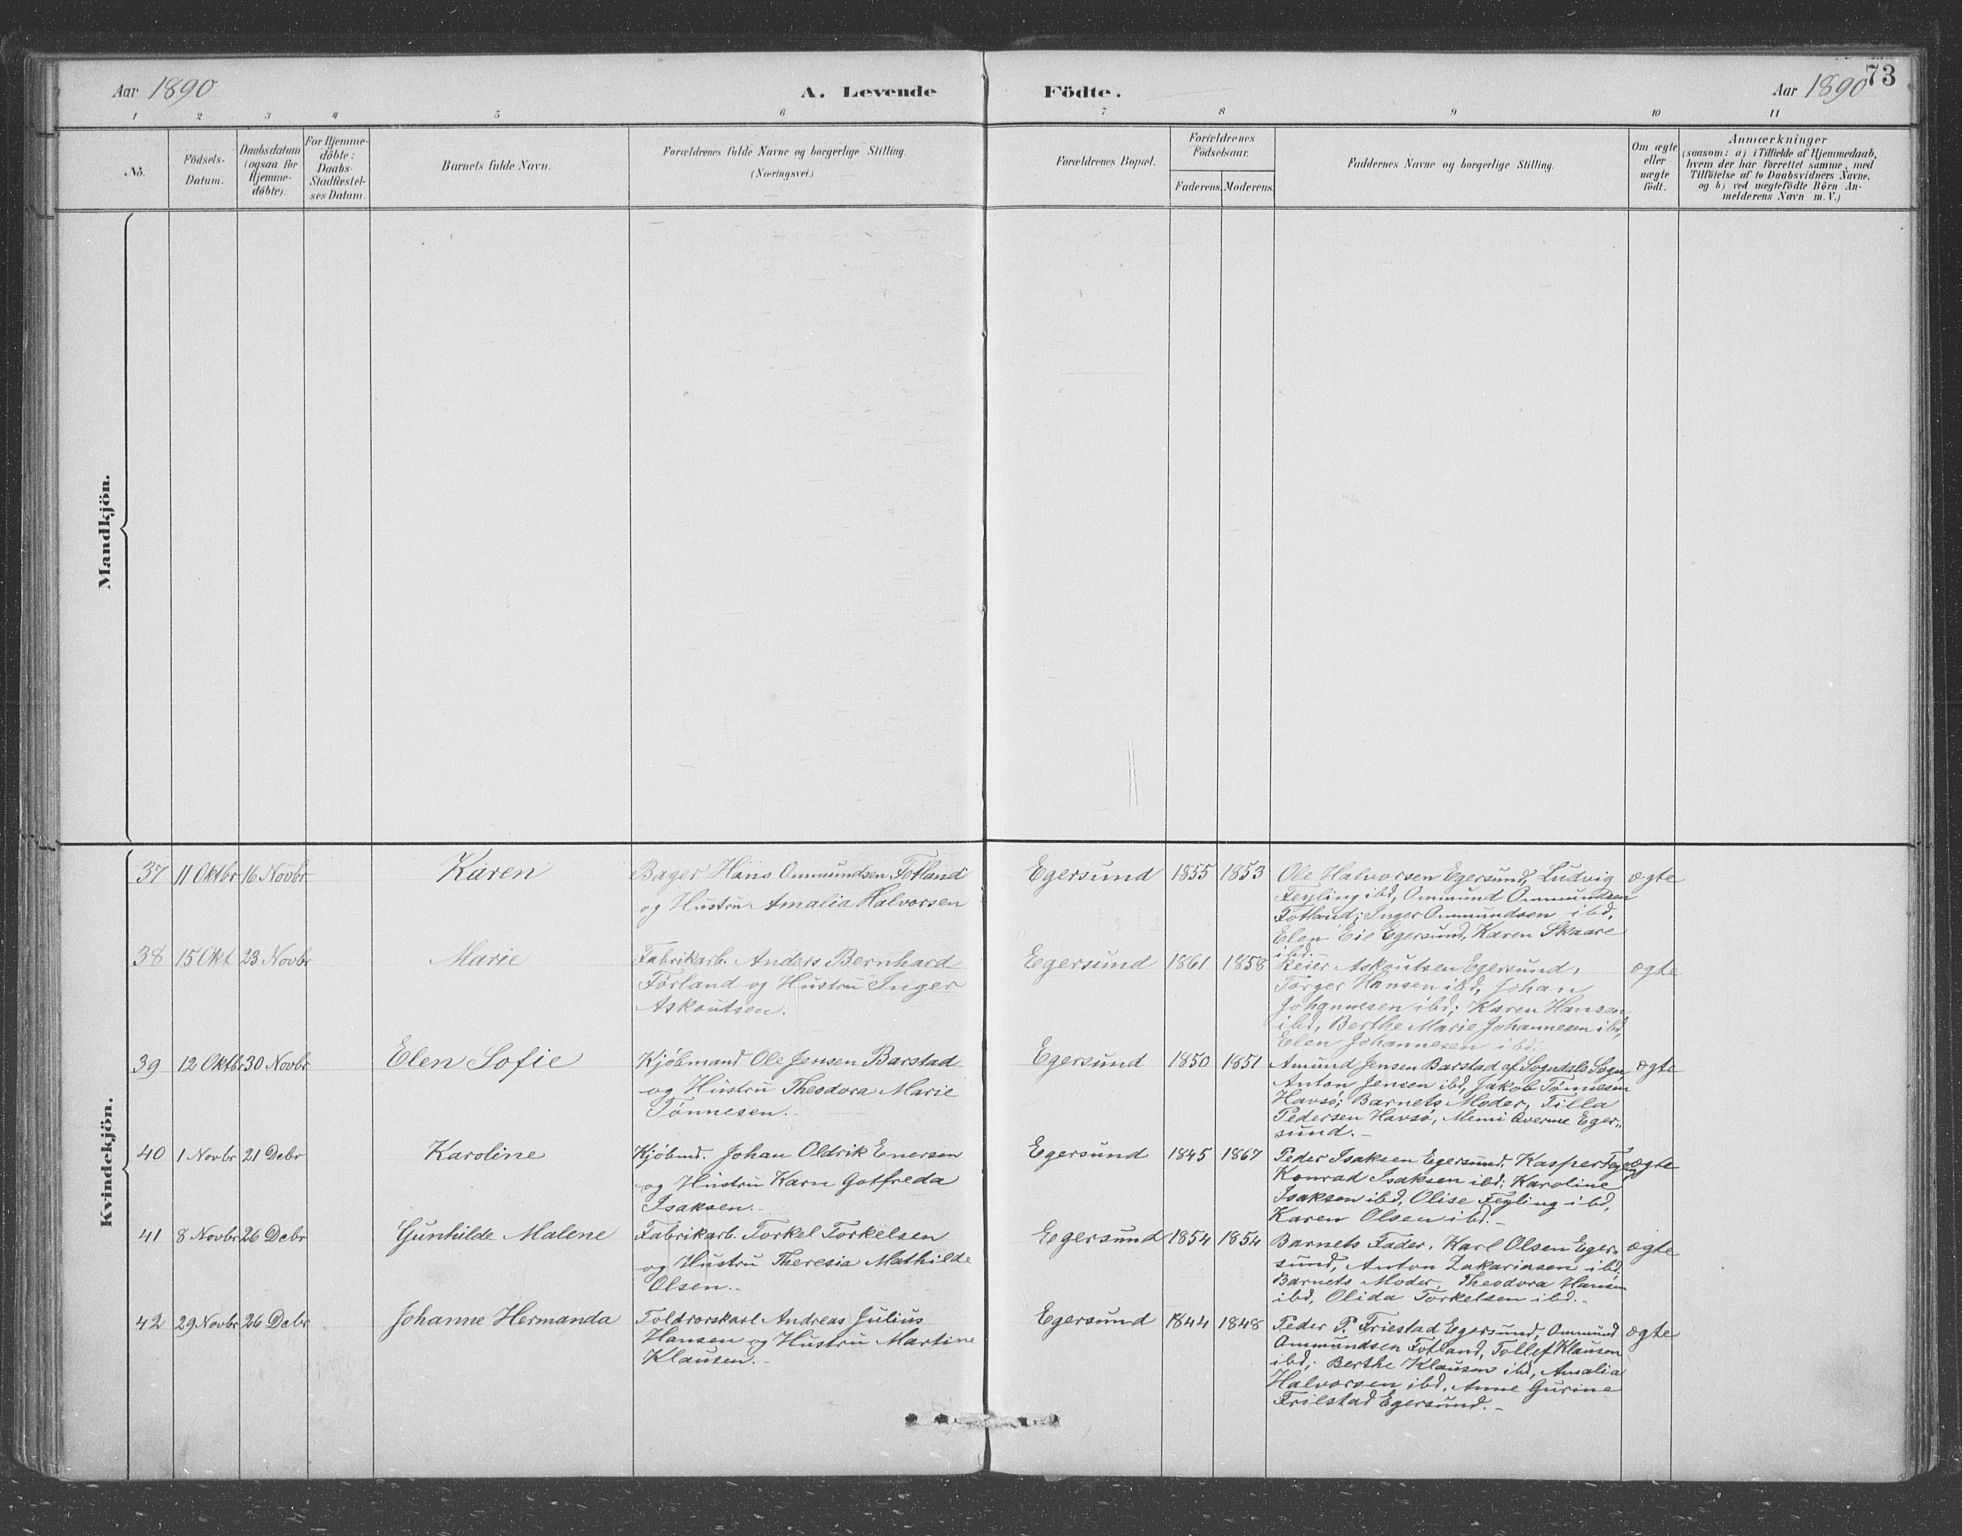 Aar 1890
A. Levende Födte.
Aar 1890
73
1 2 3 4 5 6 7 8 9 10 11
No.
Födsels-
Datum.
Daabsdatum
(ogsaa for
Hjemme-
döbte).
For Hjemme-
döbte:
Daabs-
Stadfestel-
ses Datum.
Barnets fulde Navn.
Forældrenes fulde Navne og borgerlige Stilling.
(Næringsvei.)
Forældrenes Bopæl.
Forældrenes
Födselsaar.
Faderens. Moderens.
Faddernes Navne og borgerlige Stilling.
Om ægte
eller
uægte
födt.
Anmærkninger
(saasom: a) i Tilfælde af Hjemmedaab,
hvem der har forrettet samme, med
Tilföielse af to Daabsvidners Navne.
og b) ved uægtefödte Börn An-
melderens Navn m. V.)
Mandkjön.
Kvindekjön.
37 11 Oktbr 16 Novbr Karen
Bager Hans Ommundsen Fotland
og Hustru Amalia Halvorsen
Egersund 1855 1853
Ole Halvorsen Egersund, Ludvig
Feyling ibd, Ommund Ommundsen
Fotland; Inger Ommundsen ibd,
Elen Eie Egersund, Karen Skaare
ibd.
ægte
38 15 Okt 23 Novbr Marie
Fabrikarb. Anders Bernhard
Förland og Hustru Inger
Askoutsen.
Egersund 1861 1858
Reier Askoutsen Egersund,
Torger Hansen ibd, Johan
Johannesen ibd; Karen Hansen
ibd, Berthe Marie Johannesen ibd,
Elen Johannesen ibd.
ægte
39 12 Oktbr 30 Novbr Elen Sofie
Kjöbmand Ole Jensen Barstad
og Hustru Theodora Marie
Tönnesen.
Egersund 1850 1851
Amund Jensen Barstad af Sogndals Sogn,
Anton Jensen ibd, Jakob Tönnesen
Havsö; Barnets Moder, Tilla
Pedersen Havsö, Memi Averme Eger-
sund.
ægte
40 1 Novbr 21 Debr Karoline
Kjöbmd. Johan Oldrik Enersen
og Hustru Karn Gotfreda
Isaksen.
Egersund 1845 1867
Peder Isaksen Egersund, Kasper
Konrad Isaksen ibd; Karoline
Isaksen ibd, Olise Feyling ibd,
Karen Olsen ibd.
ægte
41 8 Novbr 26 Debr Gunhilde Malene
Fabrikarb. Torkel Torkelsen
og Hustru Theresia Mathilde
Olsen.
Egersund 1854 1854
Barnets Fader, Karl Olsen Eger-
sund, Anton Zakariasen ibd,
Barnets Moder, Theodora Hansen
ibd, Olida Torkelsen ibd.
ægte
42 29 Novbr 26 Debr Johanne Hermanda
Toldrorskarl Andreas Julius
Hansen og Hustru Martine
Klausen.
Egersund 1844 1848
Peder P. Friestad Egersund, Ommund
Ommundsen Fotland, Tollef Klausen
ibd; Berthe Klausen ibd, Amalia
Halvorsen ibd, Anne Gurine
Friestad Egersund.
ægte